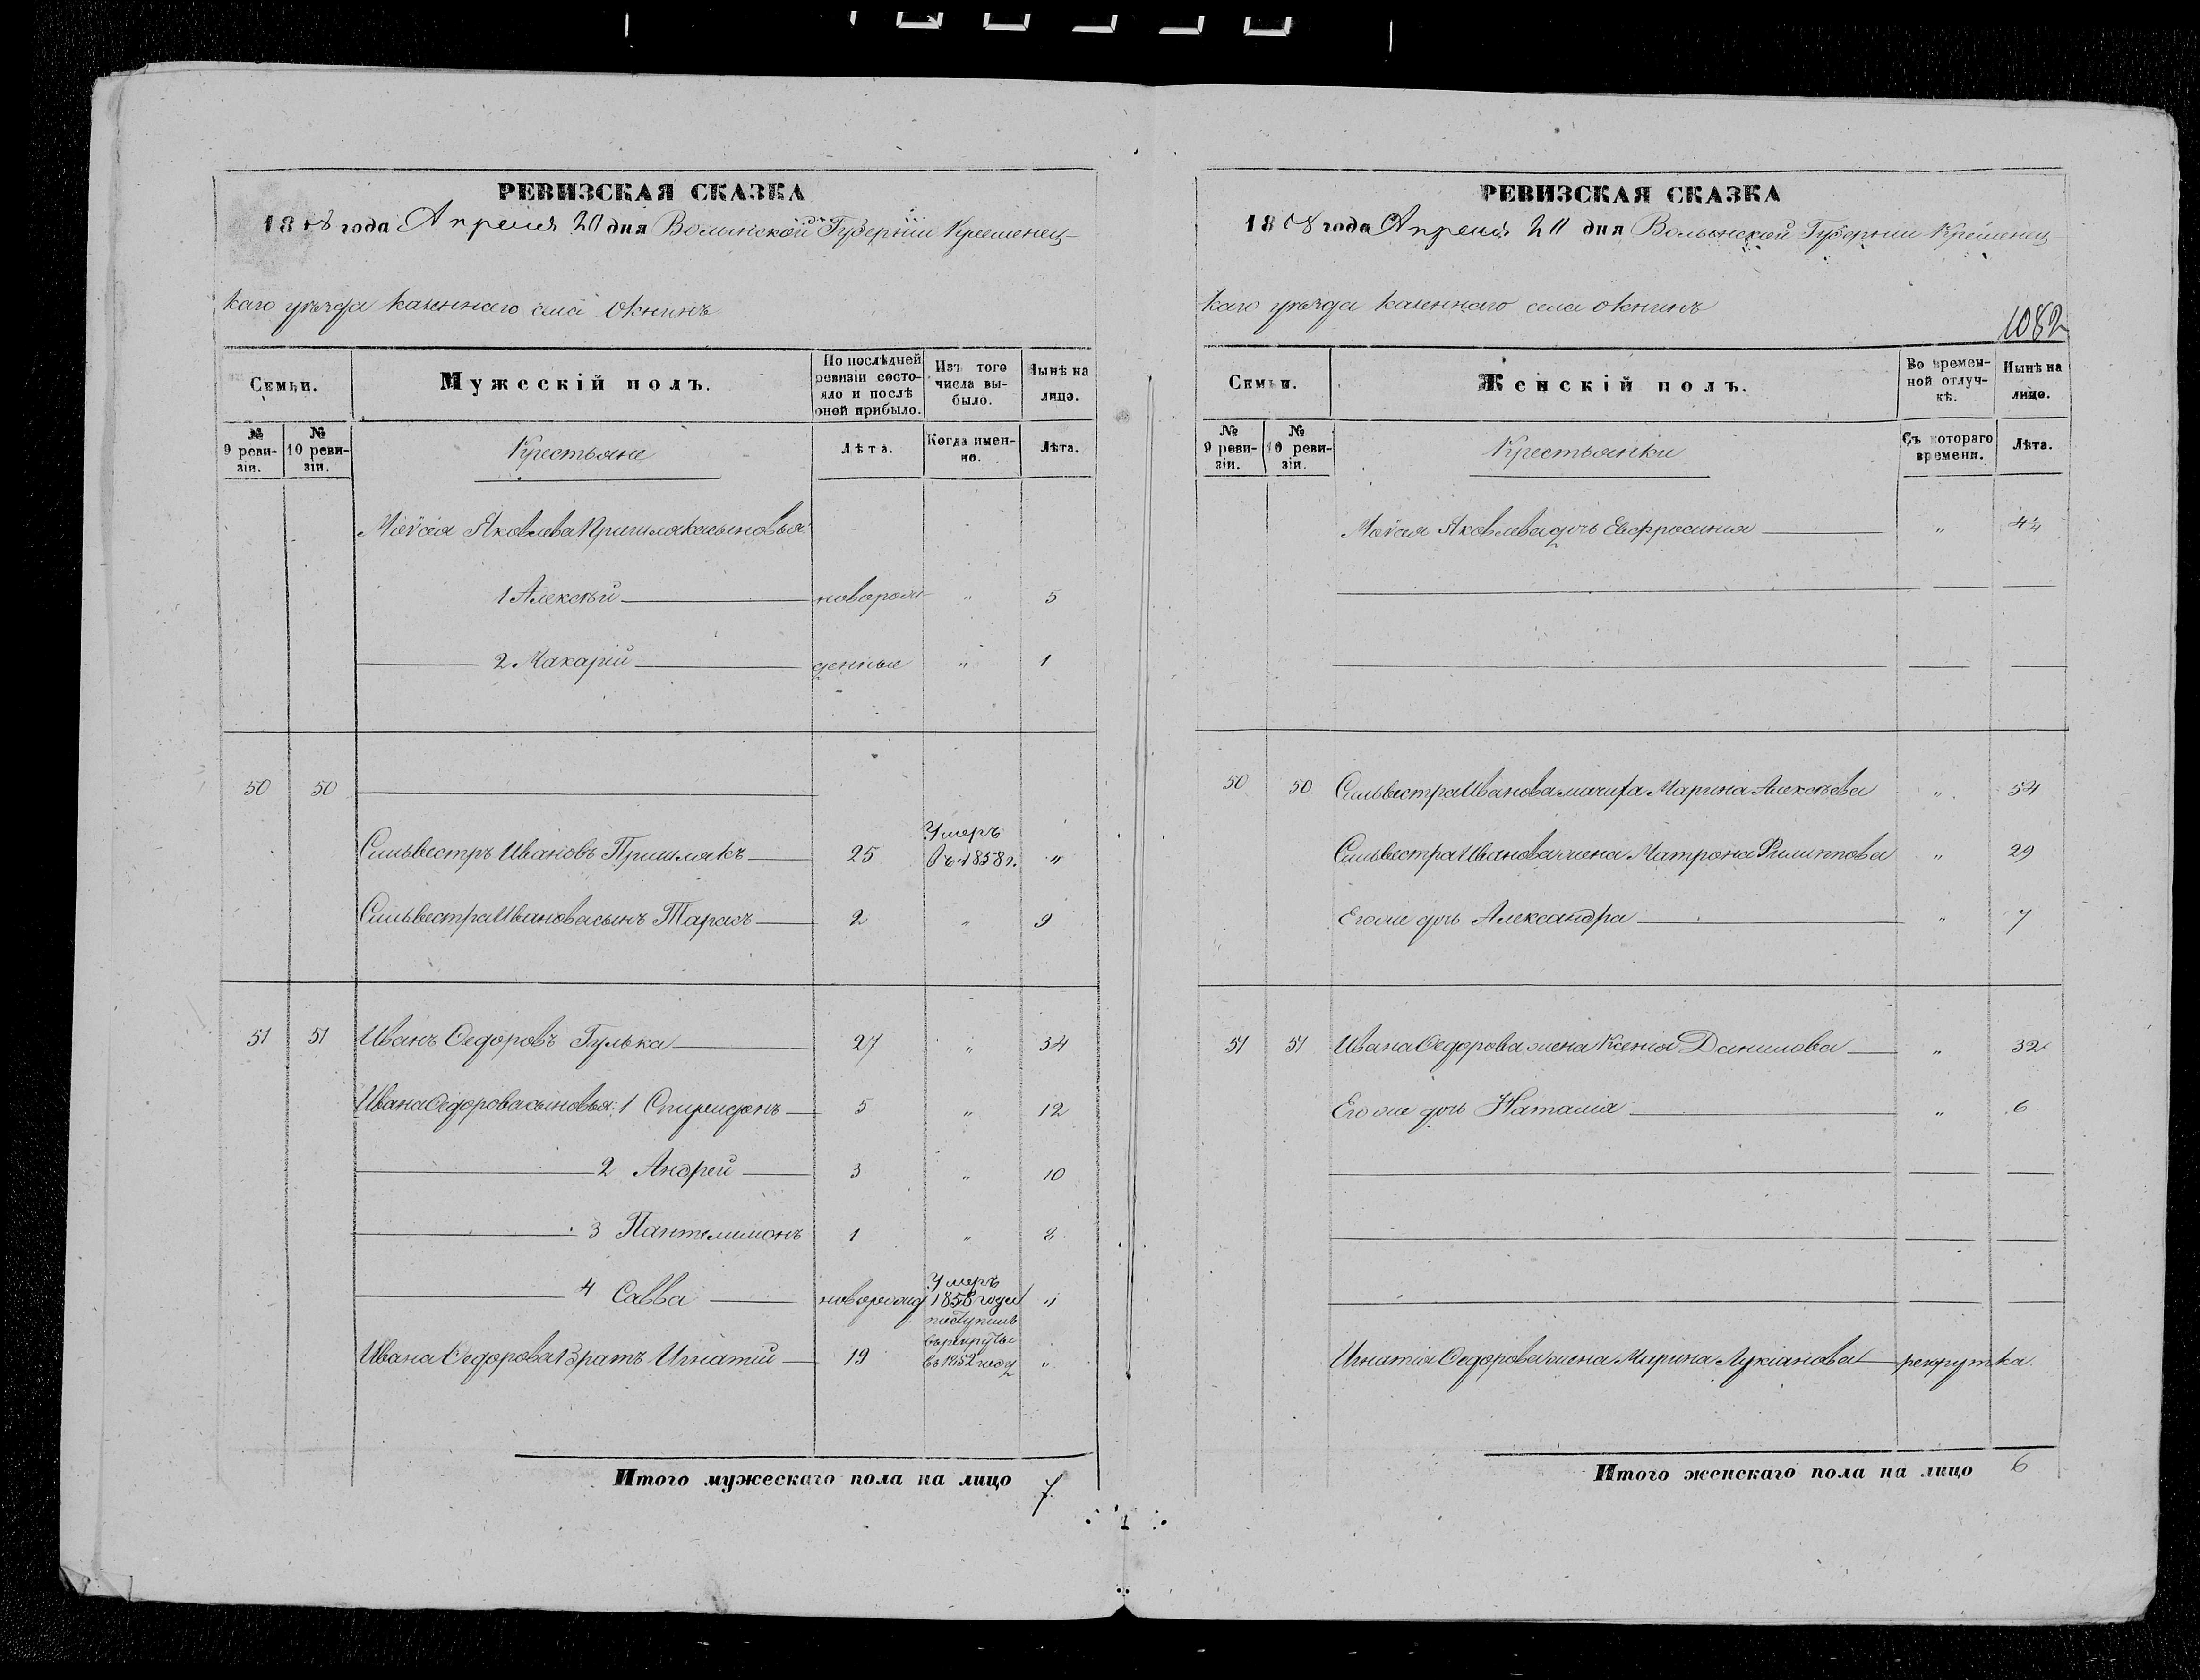 РЕВИЗСКАЯ СКАЗКА
1858 года Апреля 20 дня Волынской Губернии Кременец-
каго уѣзда казеннаго села Окнинъ
Семьи.
Мужескій полъ.
По послѣдней ревизіи состо-яло и послѣ оной прибыло.
Изъ того числа вы-было.
Нынѣ на лицо.
№ 9 реви-зіи.
№ 10 реви-зіи.
Крестьяне
Лѣта.
Когда имен-но.
Лѣта.
Моѵсея Яковлева Пришляка сыновья
1 Алексѣй новорож- " 5
2 Макарій денные " 1
50 50
Сильвестръ Ивановъ Пришлякъ 25 Умеръ въ 1858 г. "
Сильвестра Иванова сынъ Тарасъ 2 " 9
51 51 Иванъ Ѳедоровъ Гулька 27 " 34
Ивана Ѳедорова сыновья: 1 Спиридонъ 5 " 12
2 Андрей 3 " 10
3 Пантелимонъ 1 " 8
4 Савва новорожд Умеръ 1858 года "
Ивана Ѳедорова Братъ Игнатій 19 поступилъ въ рекруты въ 1852 году "
Итого мужескаго пола на лицо 7
РЕВИЗСКАЯ СКАЗКА
1858 года Апреля 20 дня Волынской Губернии Кременец
каго уѣзда казеннаго села Окнинъ
1082
Семьи.
Женскій полъ.
Во времен-ной отлуч-кѣ.
Нынѣ на лицо.
№ 9 реви-зіи.
№ 10 реви-зіи.
Крестьянки
Съ котораго времени.
Лѣта.
Моѵсея Яковлева дочь Евфросинія "
50 50 Сильвестра Иванова мачиха Марина Алексѣева " 54
Сильвестра Иванова жена Матрона Филиппова " 29
Его же дочь Александра " 7
51 51 Ивана Ѳедорова жена Ксенія Данилова " 32
Его же дочь Наталія " 6
Игнатія Ѳедорова жена Марина Лукіанова рекрутка
Итого женскаго пола на лицо 6